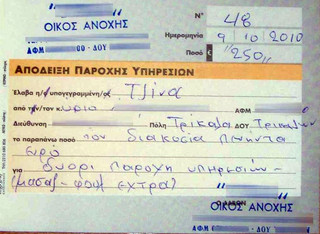 ΟΙΚΟΣ ΑΝΟΧΗΣ
ΑΦΜ 00 - ΔΟΥ
Ν° 48
Ημερομηνία 9/10/2010
Ποσό € "250"
ΑΠΟΔΕΙΞΗ ΠΑΡΟΧΗΣ ΥΠΗΡΕΣΙΩΝ
Έλαβα η/ο υπογεγραμμένη/ος Τζίνα
από τον/την κύριο ΑΦΜ
Διεύθυνση Πόλη Τρίκαλα ΔΟΥ Τρικάλων
το παραπάνω ποσό των διακόσια πενήντα
ευρώ
για παροχή υπηρεσιών
(μασάζ - φουλ έχτρα)
ΟΙΚΟΣ ΑΝΟΧΗΣ
ΑΦΜ ΔΟΥ